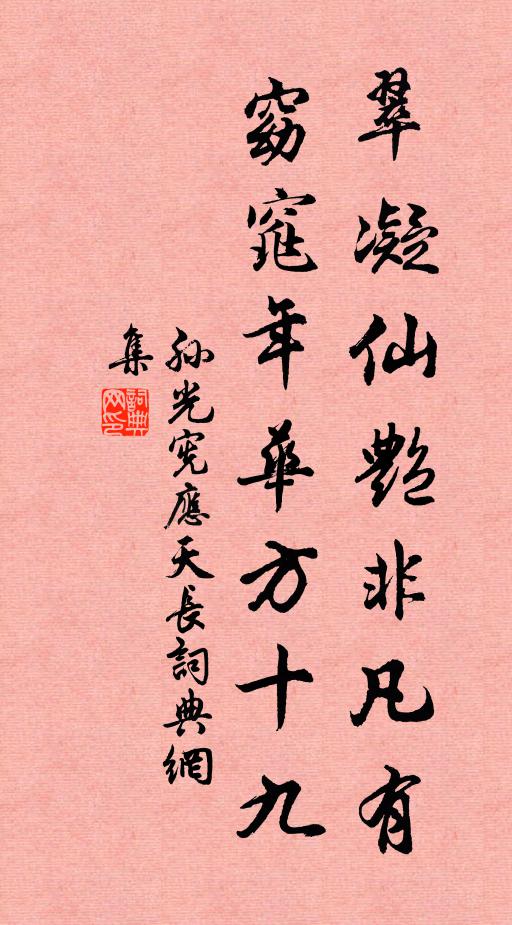 翠凝仙艷非凡有
窈窕年華方十九
孙光宪應天長詞典網
集
詞典
网印